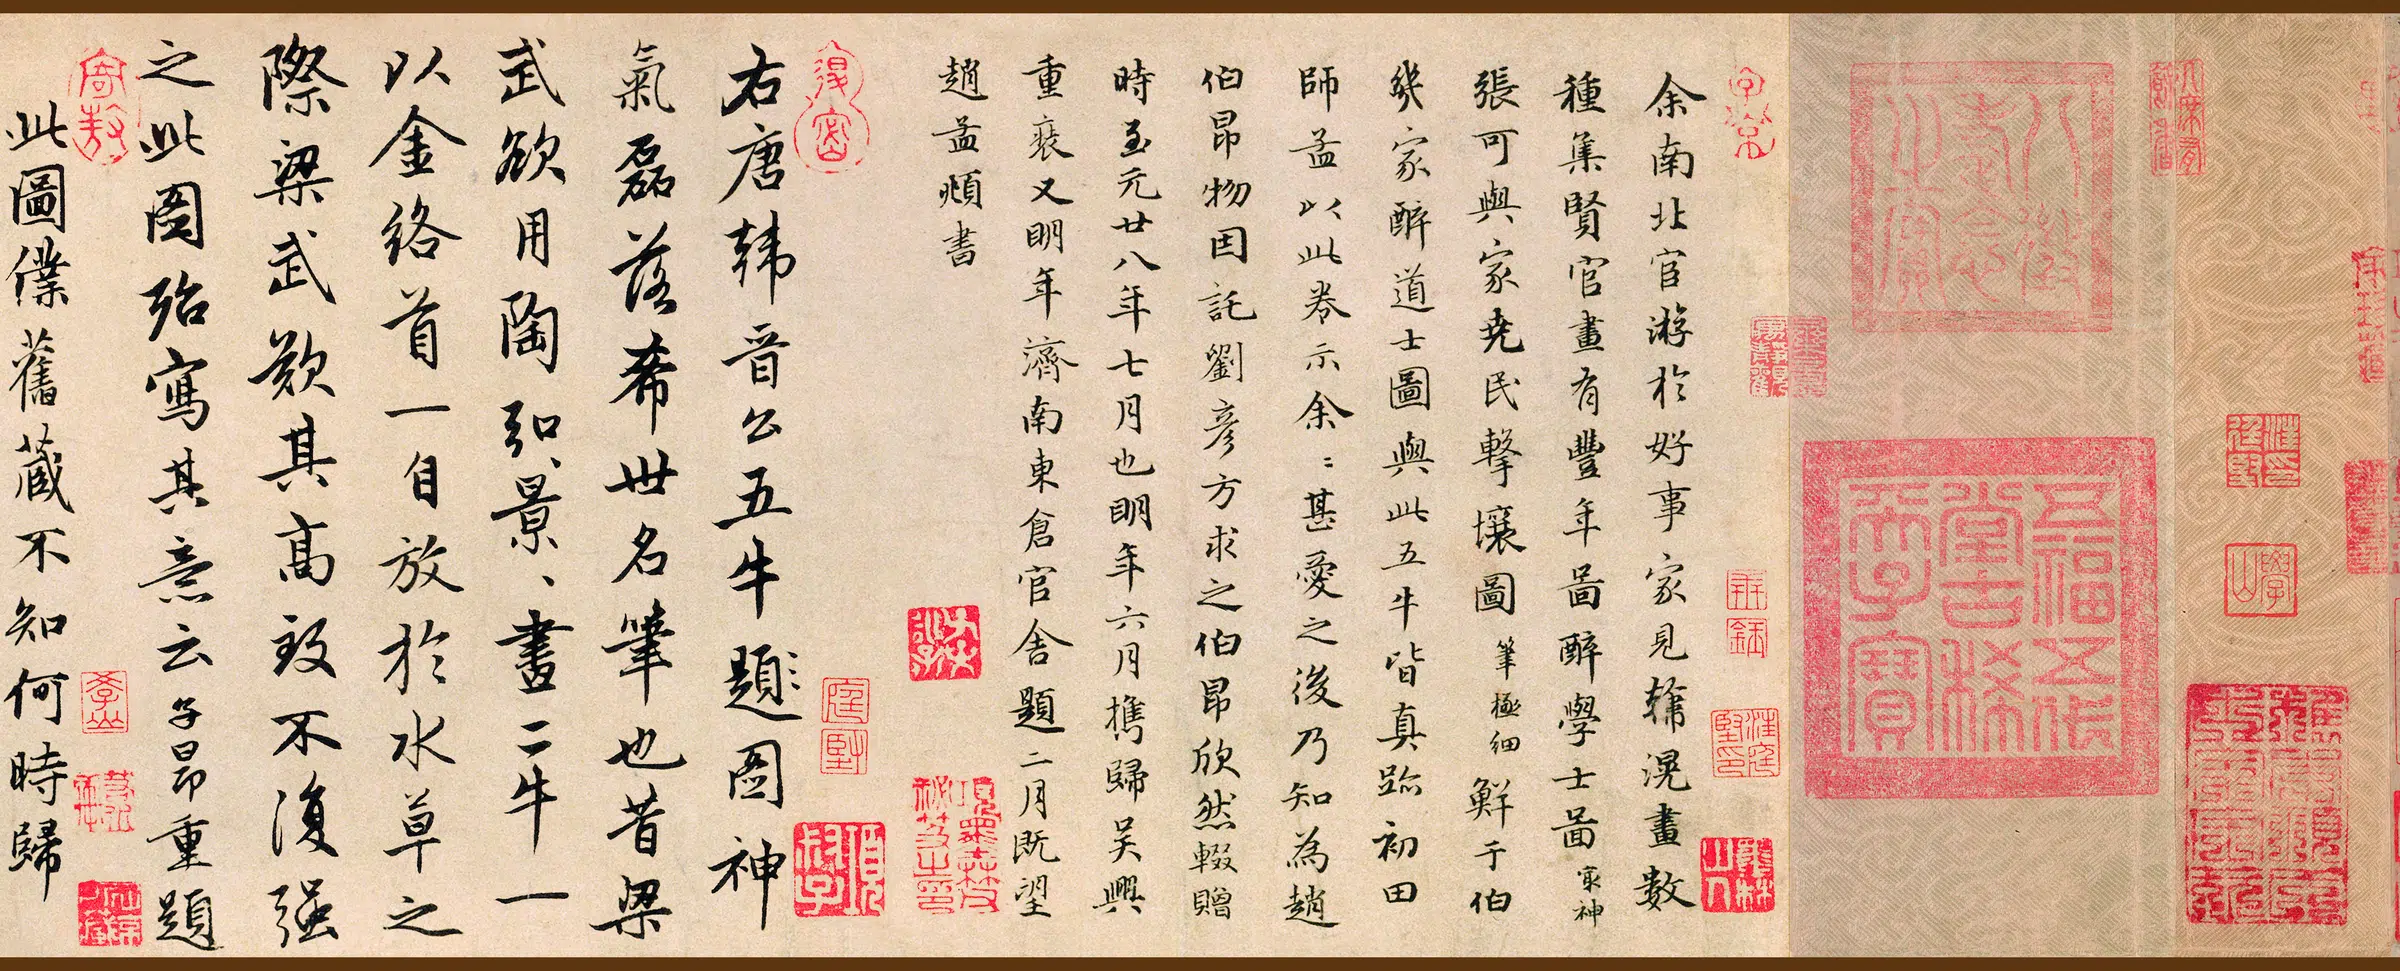 八徵耄念之寶
五福五代堂古稀天子寶
子京
余南北官游於好事家見韓滉畫數
種集賢官畫有豐年啚醉學士啚 最神
張可與家堯民擊壤圖 筆極細 鮮于伯
幾家醉道士圖與此五牛皆真跡初田
師孟以此卷示余〻甚愛之後乃知為趙
伯昂物因託劉彥方求之伯昂欣然輟贈
時至元廿八年七月也明年六月攜歸吳興
重裝又明年濟南東倉官舍題二月既望
趙孟頫書
項叔子
右唐韓晉公五牛題〻圖神
氣磊落希世名筆也昔梁
武欲用陶弘景〻畫二牛一
以金絡首一自放於水草之
際梁武歎其高致不復強
之此圖殆寫其意云子昂重題
此圖僕舊藏不知何時歸